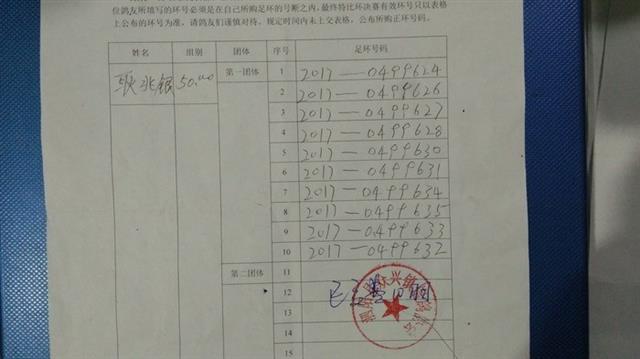 位鸽友所填写的环号必须是在自己所购足环的号断之内,最终特比环决赛有效环号只以表格
上公布的环号为准,请鸽友们谨慎对待。规定时间内未上交表格,公布所购正环号码。
姓名 组别 团体 序号 足环号码
张兆银 50.00 第一团体 1 2017-0499624
2 2017-0499626
3 2017-0499627
4 2017-0499628
5 2017-0499630
6 2017-0499631
7 2017-0499634
8 2017-0499635
9 2017-0499633
10 2017-0499632
第二团体 11
12
13
14
15